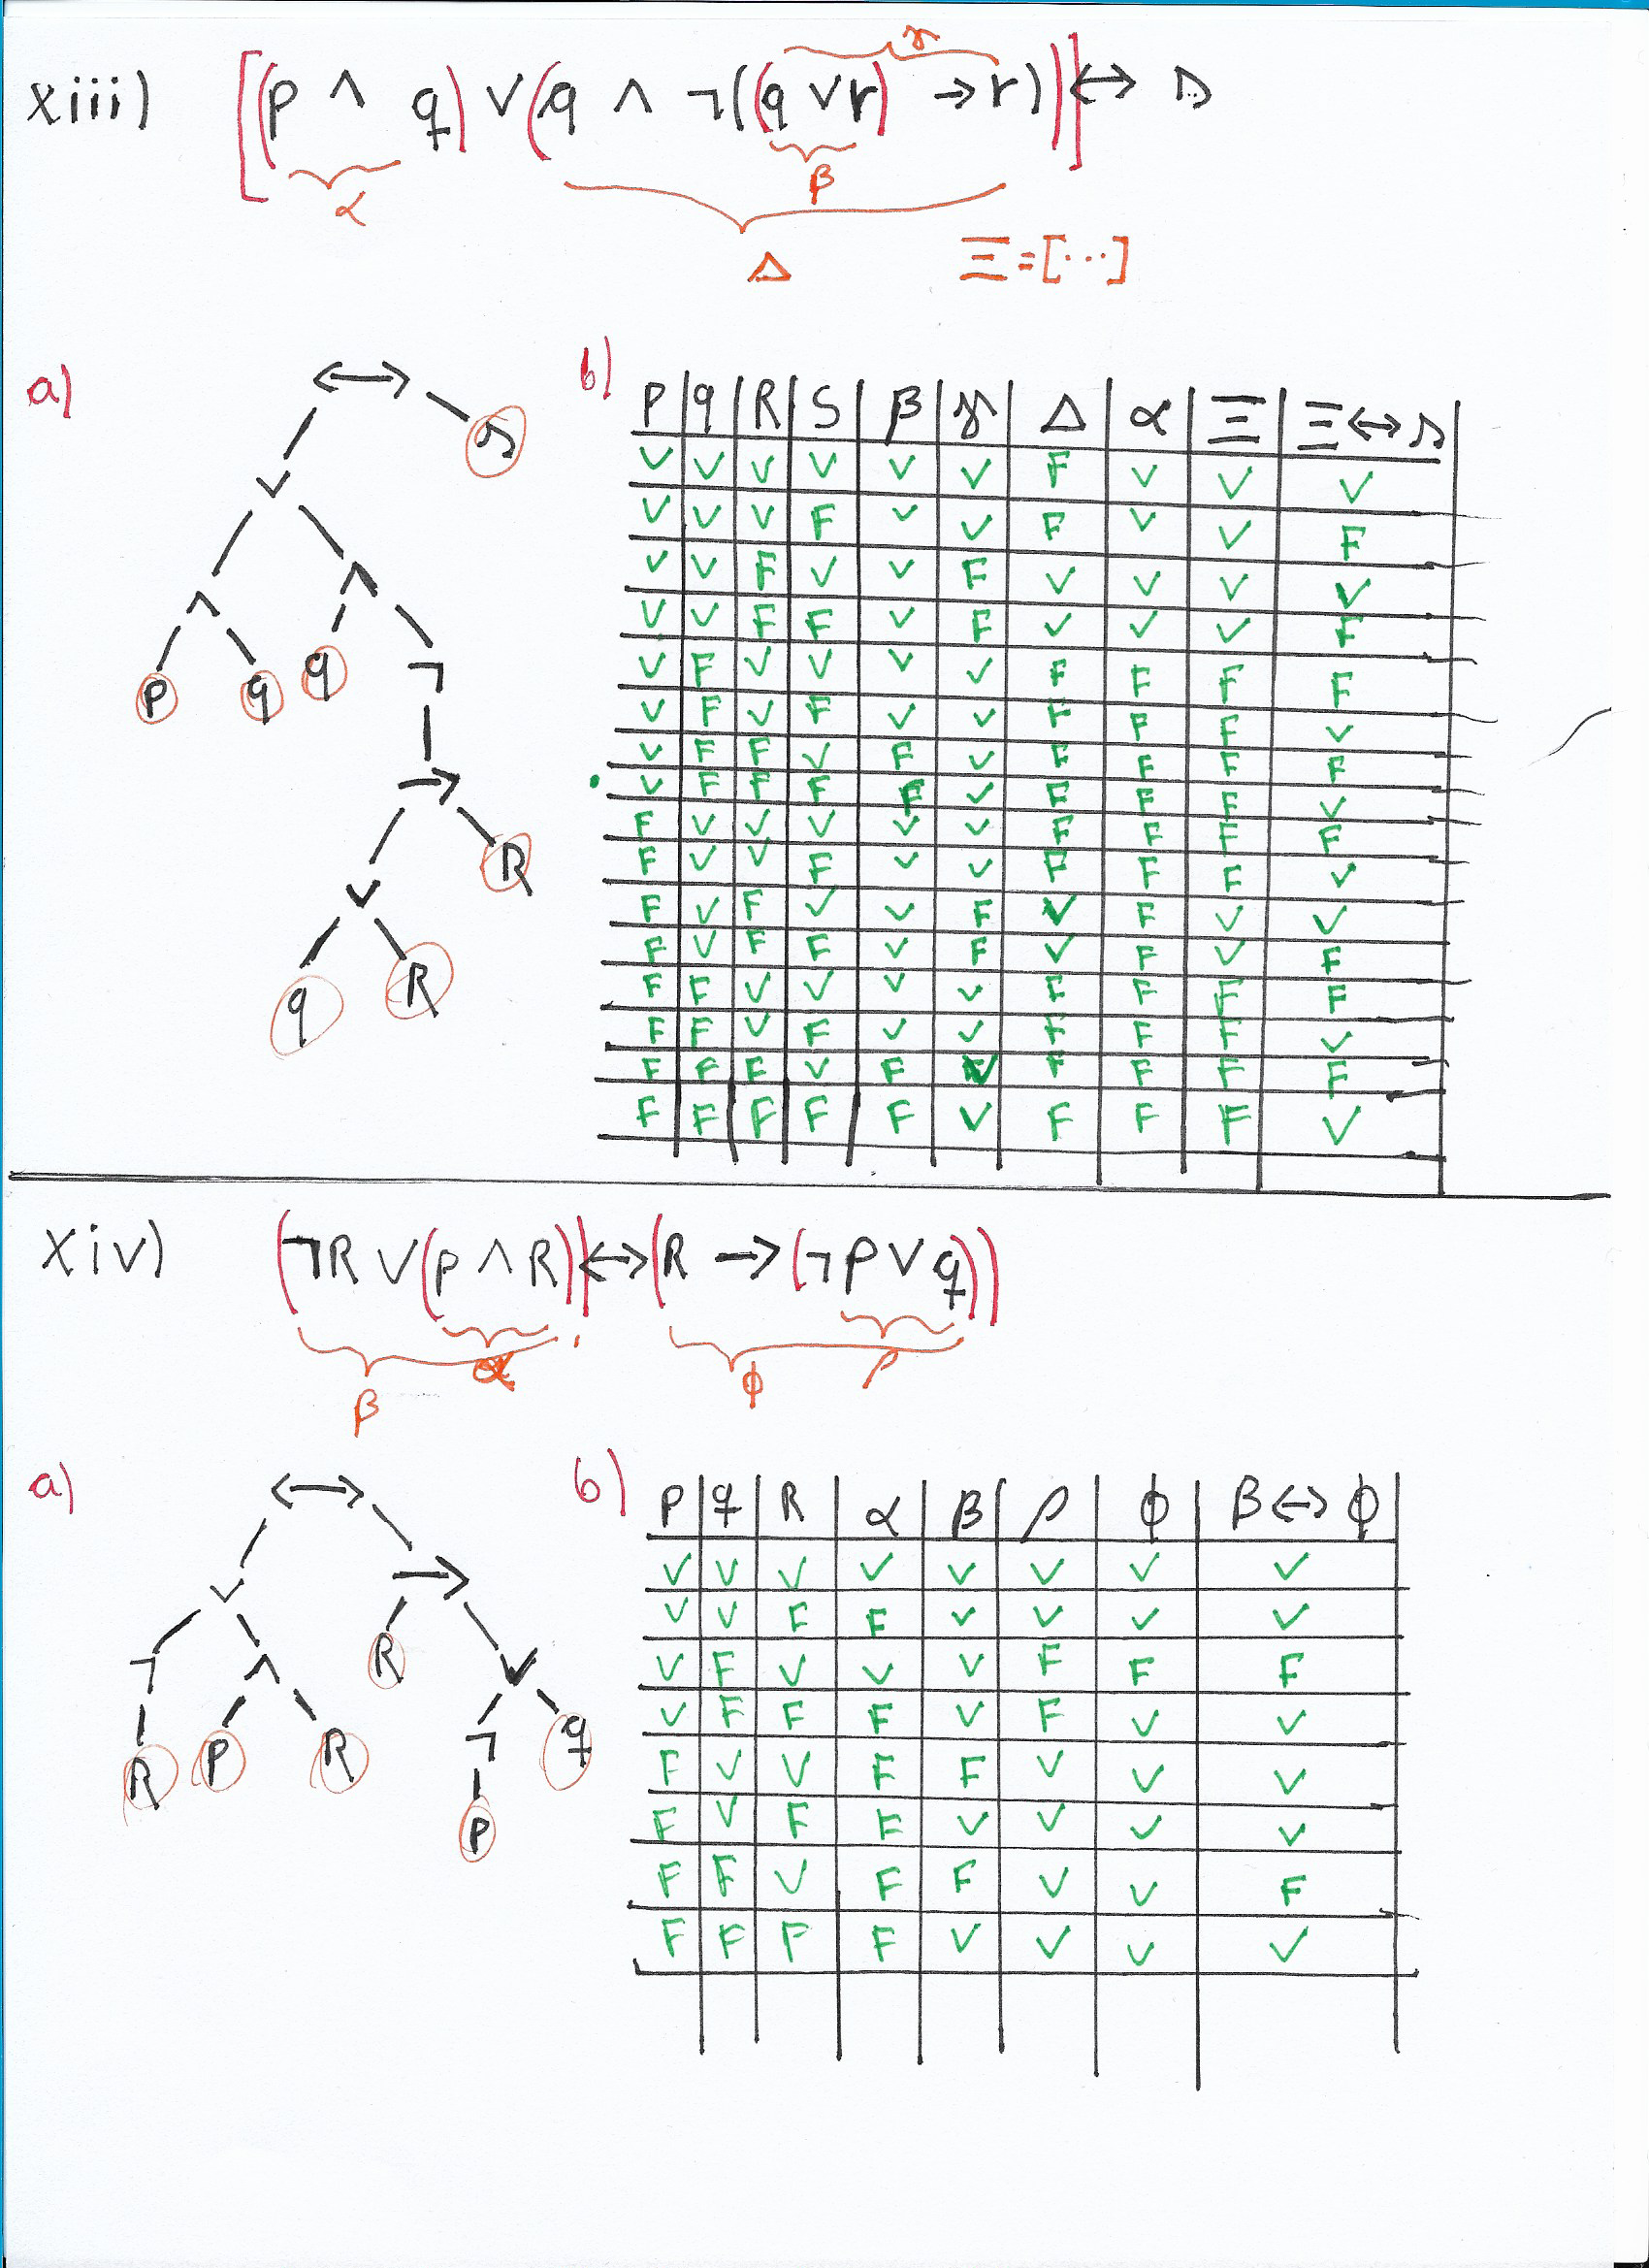 xiii) [(p ∧ q) ∨ (q ∧ ¬((q ∨ r) → r))] ↔ s
γ
α
β
Δ
Ξ = [...]
a)
↔
s
∨
∧ ∧
p q q ¬
→
∨ R
q R
b)
P q R S β γ Δ α Ξ Ξ ↔ s
V V V V V V F V V V
V V V F V V F V V F
V V F V V F V V V V
V V F F V F V V V F
V F V V V V F F F F
V F V F V V F F F V
V F F V F V F F F F
V F F F F V F F F V
F V V V V V F F F F
F V V F V V F F F V
F V F V V F V F V V
F V F F V F V F V F
F F V V V V F F F F
F F V F V V F F F V
F F F V F V F F F F
F F F F F V F F F V
xiv) (¬R ∨ (p ∧ R)) ↔ (R → (¬p ∨ q))
α
β
φ
ρ
a)
↔
∨ →
¬ ∧ R ∨
R P R ¬ q
P
b)
P q R α β ρ φ β ↔ φ
V V V V V V V V
V V F F V V V V
V F V V V F F F
V F F F V F V V
F V V F F V V V
F V F F V V V V
F F V F F V V F
F F F F V V V V